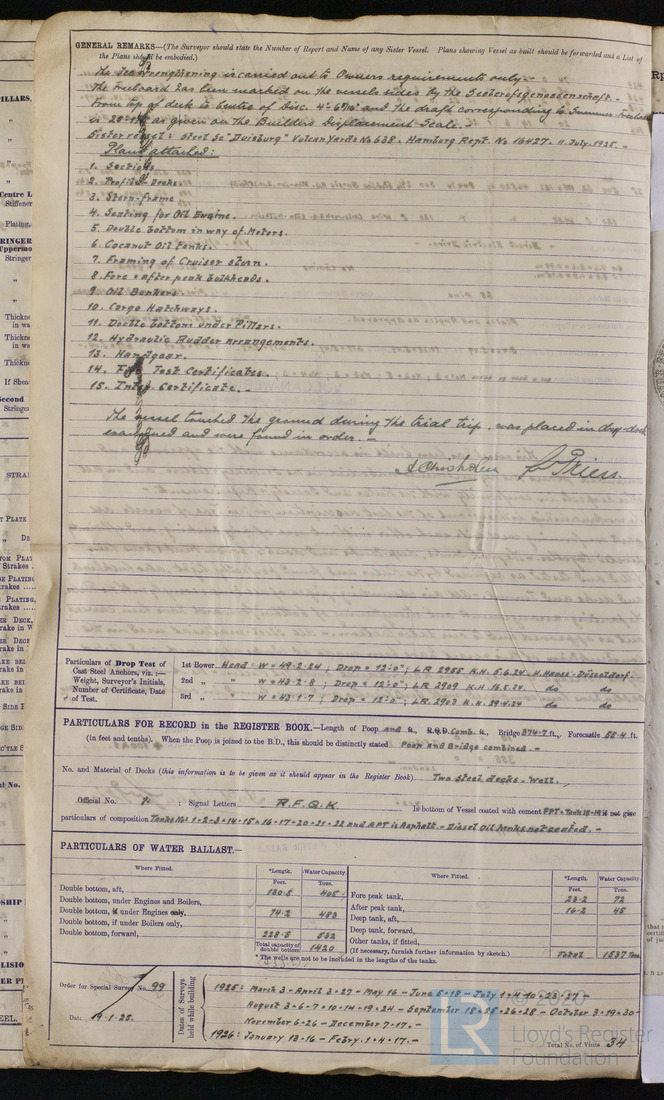 GENERAL REMARKS—(The Surveyor should state the Number of Report and Name of any Sister Vessel. Plans showing Vessel as built should be forwarded and a List of
the Plans should be embodied.)
The Ice strengthening is carried out to Owners requirements only.—
The Freeboard has been marked on the vessels sides by the Seeberufsgenossenschaft.—
From top of deck to Centre of Disc. and the draft corresponding to Summer Freeboard
is as given on the Builders Displacement Scale.—
Sister vessel: Steel Sc "Duisburg" Vulcan Yard No 638. Hamburg Rept. No 16427. 11 July. 1925.—
Plans attached:
1. Sections
2. Profile Decks
3. Stern-frame
4. Seating for Oil Engine.
5. Double bottom in way of Motors.
6. Coconut Oil Tanks.
7. Framing of Cruiser stern.
8. Fore & after peak bulkheads.
9. Oil Bunkers
10. Cargo Hatchways.
11. Double bottom under Pillars.
12. Hydraulic Rudder arrangements.
13. Handgear.
14. Test Certificates.
15. Inter. Certificate.—
The vessel touched the ground during the trial trip, was placed in dry-dock
examined and were found in order.—
Priess.
Particulars of Drop Test of
Cast Steel Anchors, viz.:—
Weight, Surveyor's Initials,
Number of Certificate, Date
of Test.
1st Bower Head W = 49-2-24 ; Drop = 12'-0" ; LR 2955 K.H. 5.6.24. H. Hesse-Düsseldorf.
2nd „ „ W = 43-2-8 ; Drop = 12'-0" ; LR 2909 K.H. 16.5.24. do do
3rd „ „ W = 43-1-7 ; Drop = 12'-0" ; LR 2903 K.H. 29.4.24 do do
PARTICULARS FOR RECORD in the REGISTER BOOK.—Length of Poop and ft., R.Q.D. Comb. ft., Bridge 374·7 ft., Forecastle 55·4 ft.
(in feet and tenths). When the Poop is joined to the B.D., this should be distinctly stated Poop and Bridge combined.—
No. and Material of Decks (this information is to be given as it should appear in the Register Book) Two steel decks - Well.
Official No. ?. : Signal Letters R.F.Q.K. Is bottom of Vessel coated with cement FPT & Tank 18-19 if not give
particulars of composition Tanks No: 1·2·3·14·15·16·17·20·21·22 and APT is Asphalt.— Diesel Oil Tanks not coated.—
PARTICULARS OF WATER BALLAST.—
Where Fitted. *Length. Water Capacity. Where Fitted. *Length. Water Capacity.
Feet. Tons. Feet. Tons.
Double bottom, aft, 130·5 405 Fore peak tank, 23·2 72
Double bottom, under Engines and Boilers, After peak tank, 16·2 45
Double bottom, if under Engines only, 74·2 483 Deep tank, aft,
Double bottom, if under Boilers only, Deep tank, forward,
Double bottom, forward, 228·5 532 Other tanks, if fitted,
Total capacity of double bottom 1420 (If necessary, furnish further information by sketch.) Total 1537 Tons
* The wells are not to be included in the lengths of the tanks.
Order for Special Survey No. 99
Date 19.1.25.
Dates of Surveys held while building
1925: March 3 - April 3·27 - May 16 - June 5·18 - July 1·4·10·23·27 -
August 3·6·7·10·14·19·24 - September 18·25·26·28 - October 3·19·30 -
November 6·26 - December 7·17.—
1926: January 13·16 - Febry. 1·4·17.—
Total No. of Visits 34
© 2020
LR
Lloyd's Register
Foundation